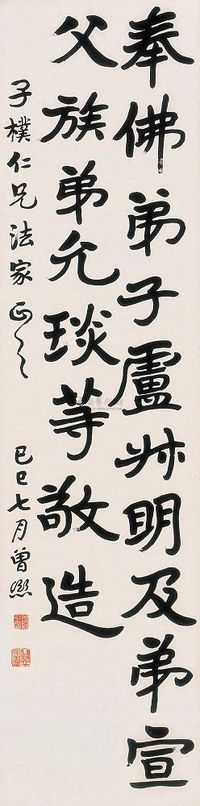 奉佛弟子盧明及弟宣
父族弟允琰等敬造
子樸仁兄法家正之
己巳七月曾熙